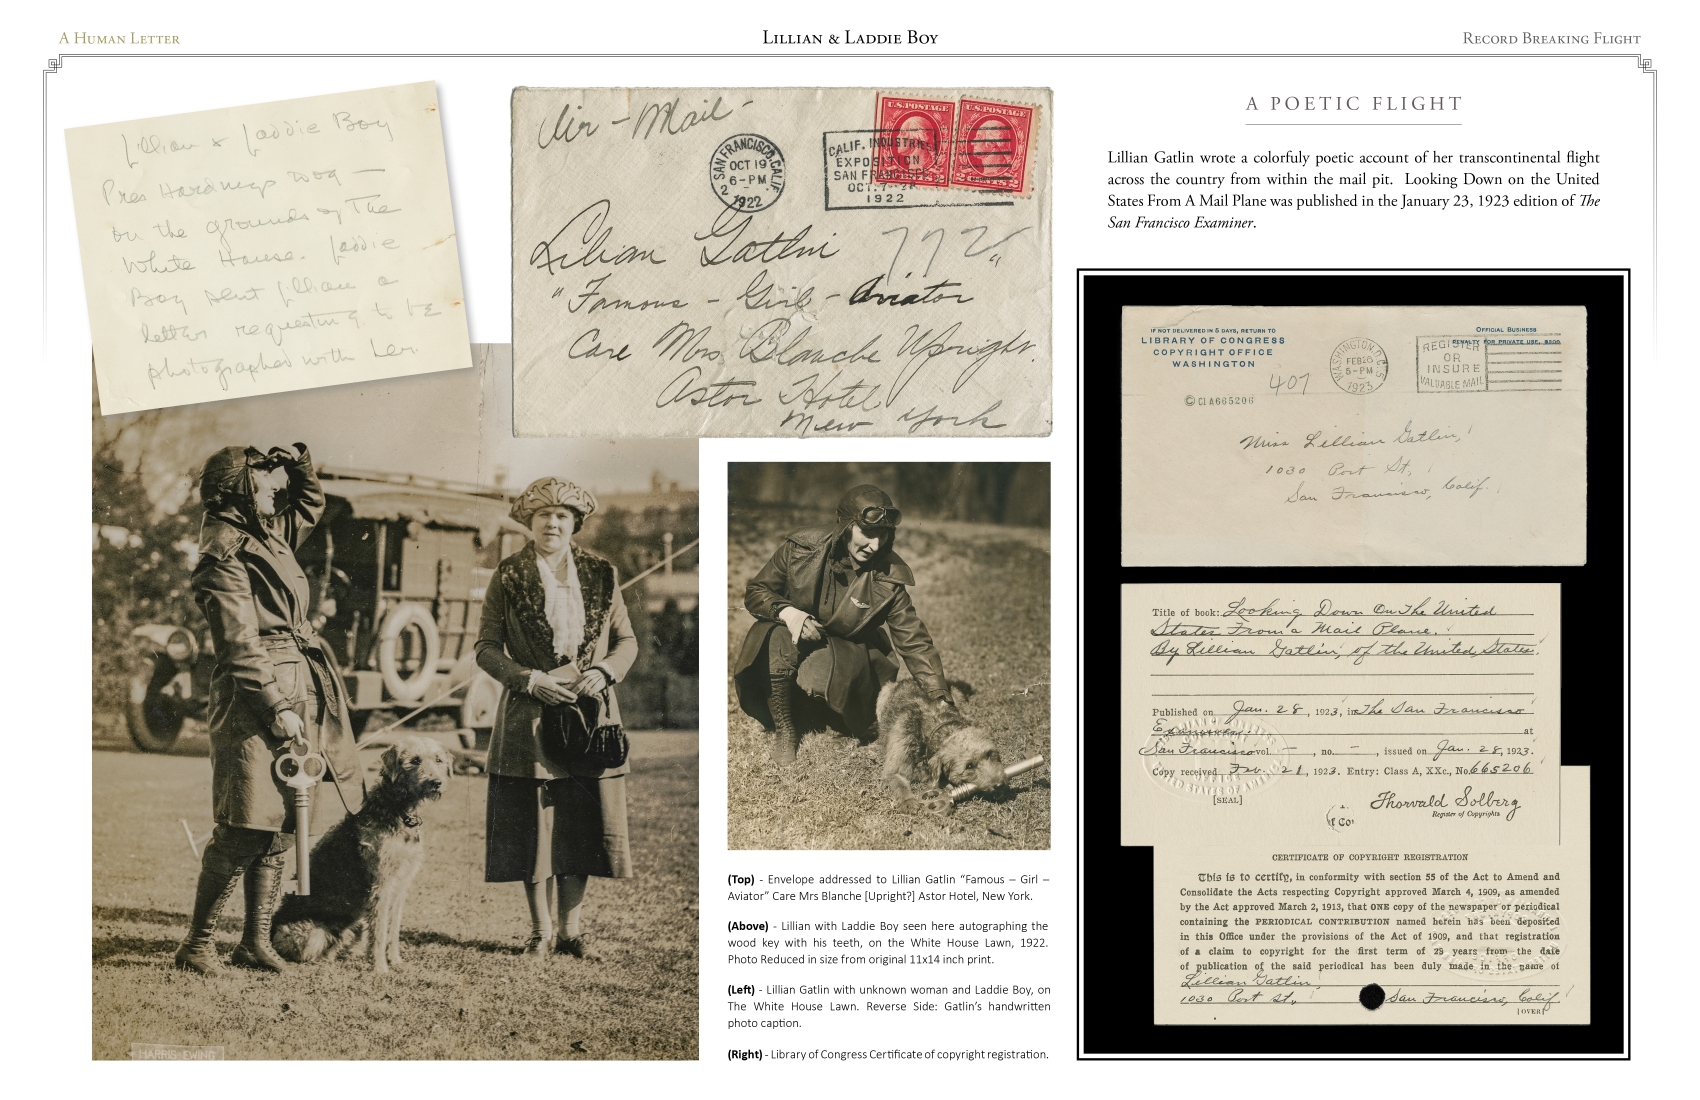 A Human Letter
Lillian & Laddie Boy
Record Breaking Flight
Lillian & Laddie Boy
Pres Hardings Dog —
on the grounds of The
White House. Laddie
Boy sent Lillian a
letter requesting to be
photographed with her.
Air-Mail
SAN FRANCISCO, CALIF.
OCT 19
6-PM
2
1922
CALIF. INDUSTRIES
EXPOSITION
SAN FRANCISCO
OCT. 7-
1922
U.S. POSTAGE
U.S. POSTAGE
Lilian Gatlin
772
"Famous - Girl - Aviator"
Care Mrs Blanche Upright.
Astor Hotel
New York
A POETIC FLIGHT
Lillian Gatlin wrote a colorfuly poetic account of her transcontinental flight
across the country from within the mail pit. Looking Down on the United
States From A Mail Plane was published in the January 23, 1923 edition of The
San Francisco Examiner.
IF NOT DELIVERED IN 5 DAYS, RETURN TO
LIBRARY OF CONGRESS
COPYRIGHT OFFICE
WASHINGTON
OFFICIAL BUSINESS
PENALTY FOR PRIVATE USE, $300
WASHINGTON, D.C.
FEB 26
5-PM
1923
REGISTER
OR
INSURE
VALUABLE MAIL
407
© Cl A665206
Miss Lillian Gatlin,
1030 Post St,
San Francisco, Calif.
Title of book: Looking Down On The United
States From a Mail Plane.
By Lillian Gatlin, of the United States.
Published on Jan. 28, 1923, in The San Francisco
Examiner. at
San Francisco vol. —, no. —, issued on Jan. 28, 1923.
Copy received Feb. 21, 1923. Entry: Class A, XXc., No. 665206
[SEAL]
Thorvald Solberg
Register of Copyrights
CERTIFICATE OF COPYRIGHT REGISTRATION
This is to certify, in conformity with section 55 of the Act to Amend and
Consolidate the Acts respecting Copyright approved March 4, 1909, as amended
by the Act approved March 2, 1913, that ONE copy of the newspaper or periodical
containing the PERIODICAL CONTRIBUTION named herein has been deposited
in this Office under the provisions of the Act of 1909, and that registration
of a claim to copyright for the first term of 28 years from the date
of publication of the said periodical has been duly made in the name of
Lillian Gatlin
1030 Post St., San Francisco, Calif.
[OVER]
(Top) - Envelope addressed to Lillian Gatlin “Famous – Girl –
Aviator” Care Mrs Blanche [Upright?] Astor Hotel, New York.
(Above) - Lillian with Laddie Boy seen here autographing the
wood key with his teeth, on the White House Lawn, 1922.
Photo Reduced in size from original 11x14 inch print.
(Left) - Lillian Gatlin with unknown woman and Laddie Boy, on
The White House Lawn. Reverse Side: Gatlin’s handwritten
photo caption.
(Right) - Library of Congress Certificate of copyright registration.
HARRIS EWING